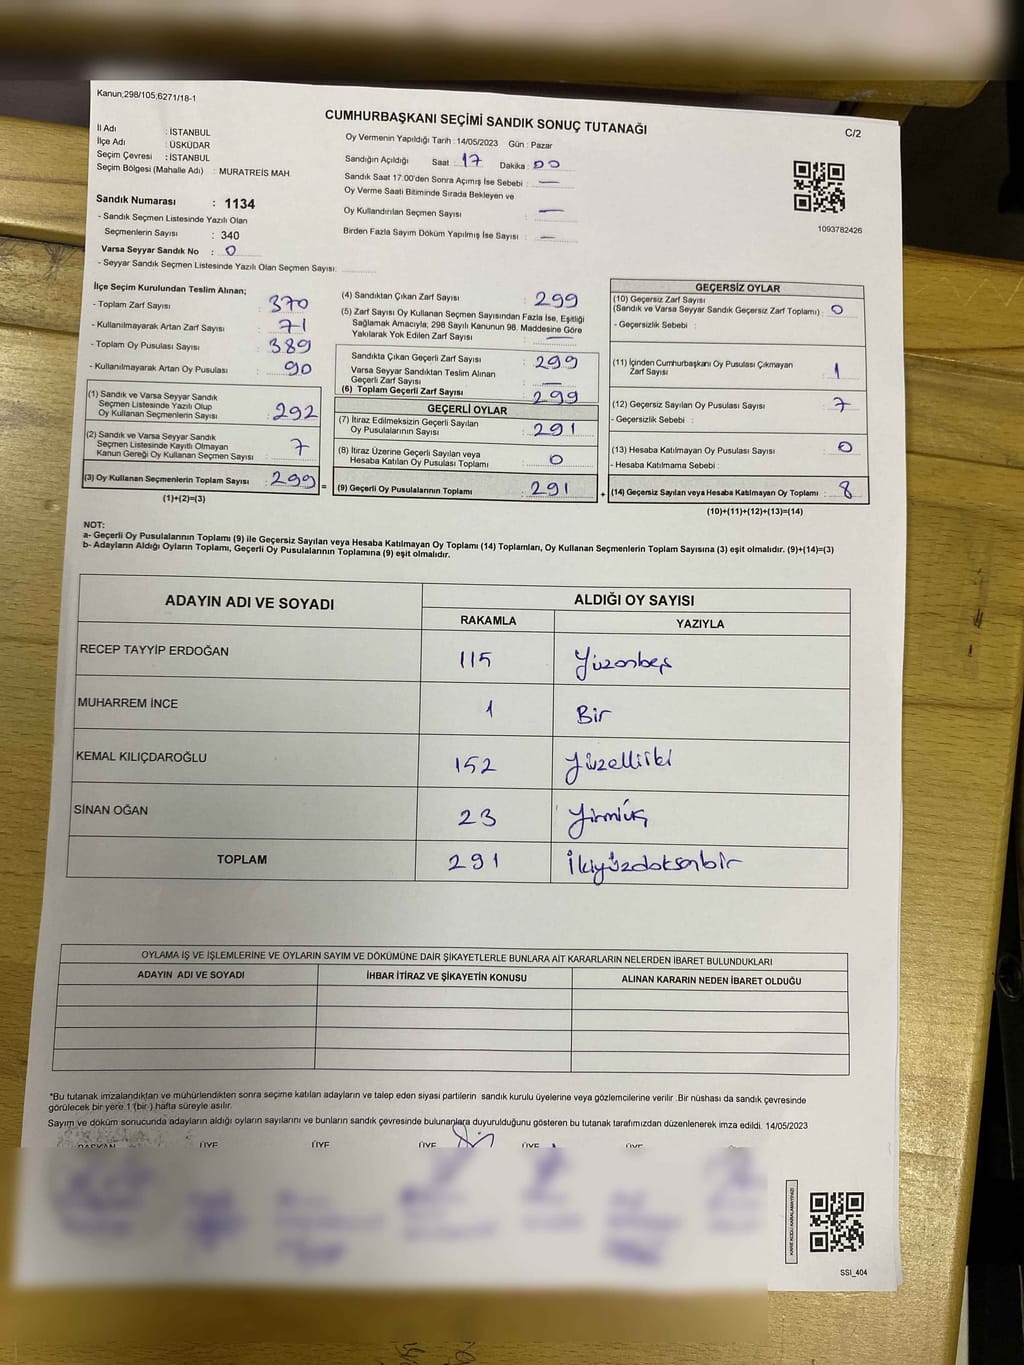 Kanun;298/105;6271/18-1
CUMHURBAŞKANI SEÇİMİ SANDIK SONUÇ TUTANAĞI
C/2
İl Adı : İSTANBUL
İlçe Adı : ÜSKÜDAR
Seçim Çevresi : İSTANBUL
Seçim Bölgesi (Mahalle Adı) : MURATREİS MAH.
Oy Vermenin Yapıldığı Tarih : 14/05/2023 Gün : Pazar
Sandığın Açıldığı Saat : 17 Dakika : 00
Sandık Saat 17:00'den Sonra Açımış İse Sebebi : —
Oy Verme Saati Bitiminde Sırada Bekleyen ve
Oy Kullandırılan Seçmen Sayısı : —
Birden Fazla Sayım Döküm Yapılmış İse Sayısı : —
1093782426
Sandık Numarası : 1134
- Sandık Seçmen Listesinde Yazılı Olan
Seçmenlerin Sayısı : 340
Varsa Seyyar Sandık No : 0
- Seyyar Sandık Seçmen Listesinde Yazılı Olan Seçmen Sayısı:
İlçe Seçim Kurulundan Teslim Alınan;
- Toplam Zarf Sayısı : 370
- Kullanılmayarak Artan Zarf Sayısı : 71
- Toplam Oy Pusulası Sayısı : 389
- Kullanılmayarak Artan Oy Pusulası : 90
(1) Sandık ve Varsa Seyyar Sandık
Seçmen Listesinde Yazılı Olup
Oy Kullanan Seçmenlerin Sayısı : 292
(2) Sandık ve Varsa Seyyar Sandık
Seçmen Listesinde Kayıtlı Olmayan
Kanun Gereği Oy Kullanan Seçmen Sayısı : 7
(3) Oy Kullanan Seçmenlerin Toplam Sayısı : 299 =
(1)+(2)=(3)
(4) Sandıktan Çıkan Zarf Sayısı : 299
(5) Zarf Sayısı Oy Kullanan Seçmen Sayısından Fazla İse, Eşitliği
Sağlamak Amacıyla; 298 Sayılı Kanunun 98. Maddesine Göre
Yakılarak Yok Edilen Zarf Sayısı : —
Sandıkta Çıkan Geçerli Zarf Sayısı : 299
Varsa Seyyar Sandıktan Teslim Alınan
Geçerli Zarf Sayısı : —
(6) Toplam Geçerli Zarf Sayısı : 299
GEÇERLİ OYLAR
(7) İtiraz Edilmeksizin Geçerli Sayılan
Oy Pusulalarının Sayısı : 291
(8) İtiraz Üzerine Geçerli Sayılan veya
Hesaba Katılan Oy Pusulası Toplamı : 0
(9) Geçerli Oy Pusulalarının Toplamı : 291 +
GEÇERSİZ OYLAR
(10) Geçersiz Zarf Sayısı
(Sandık ve Varsa Seyyar Sandık Geçersiz Zarf Toplamı) : 0
- Geçersizlik Sebebi :
(11) İçinden Cumhurbaşkanı Oy Pusulası Çıkmayan
Zarf Sayısı : 1
(12) Geçersiz Sayılan Oy Pusulası Sayısı : 7
- Geçersizlik Sebebi :
(13) Hesaba Katılmayan Oy Pusulası Sayısı : 0
- Hesaba Katılmama Sebebi :
(14) Geçersiz Sayılan veya Hesaba Katılmayan Oy Toplamı : 8
(10)+(11)+(12)+(13)=(14)
NOT:
a- Geçerli Oy Pusulalarının Toplamı (9) ile Geçersiz Sayılan veya Hesaba Katılmayan Oy Toplamı (14) Toplamları, Oy Kullanan Seçmenlerin Toplam Sayısına (3) eşit olmalıdır. (9)+(14)=(3)
b- Adayların Aldığı Oyların Toplamı, Geçerli Oy Pusulalarının Toplamına (9) eşit olmalıdır.
ADAYIN ADI VE SOYADI
ALDIĞI OY SAYISI
RAKAMLA YAZIYLA
RECEP TAYYİP ERDOĞAN 115 Yüzonbeş
MUHARREM İNCE 1 Bir
KEMAL KILIÇDAROĞLU 152 Yüzelliiki
SİNAN OĞAN 23 Yirmiüç
TOPLAM 291 İkiyüzdoksanbir
OYLAMA İŞ VE İŞLEMLERİNE VE OYLARIN SAYIM VE DÖKÜMÜNE DAİR ŞİKAYETLERLE BUNLARA AİT KARARLARIN NELERDEN İBARET BULUNDUKLARI
ADAYIN ADI VE SOYADI İHBAR İTİRAZ VE ŞİKAYETİN KONUSU ALINAN KARARIN NEDEN İBARET OLDUĞU
*Bu tutanak imzalandıktan ve mühürlendikten sonra seçime katılan adayların ve talep eden siyasi partilerin sandık kurulu üyelerine veya gözlemcilerine verilir .Bir nüshası da sandık çevresinde
görülecek bir yere 1 (bir ) hafta süreyle asılır.
Sayım ve döküm sonucunda adayların aldığı oyların sayılarını ve bunların sandık çevresinde bulunanlara duyurulduğunu gösteren bu tutanak tarafımızdan düzenlenerek imza edildi. 14/05/2023
BAŞKAN ÜYE ÜYE ÜYE ÜYE ÜYE
KARE KODU KARALAMAYINIZ!
SSI_404